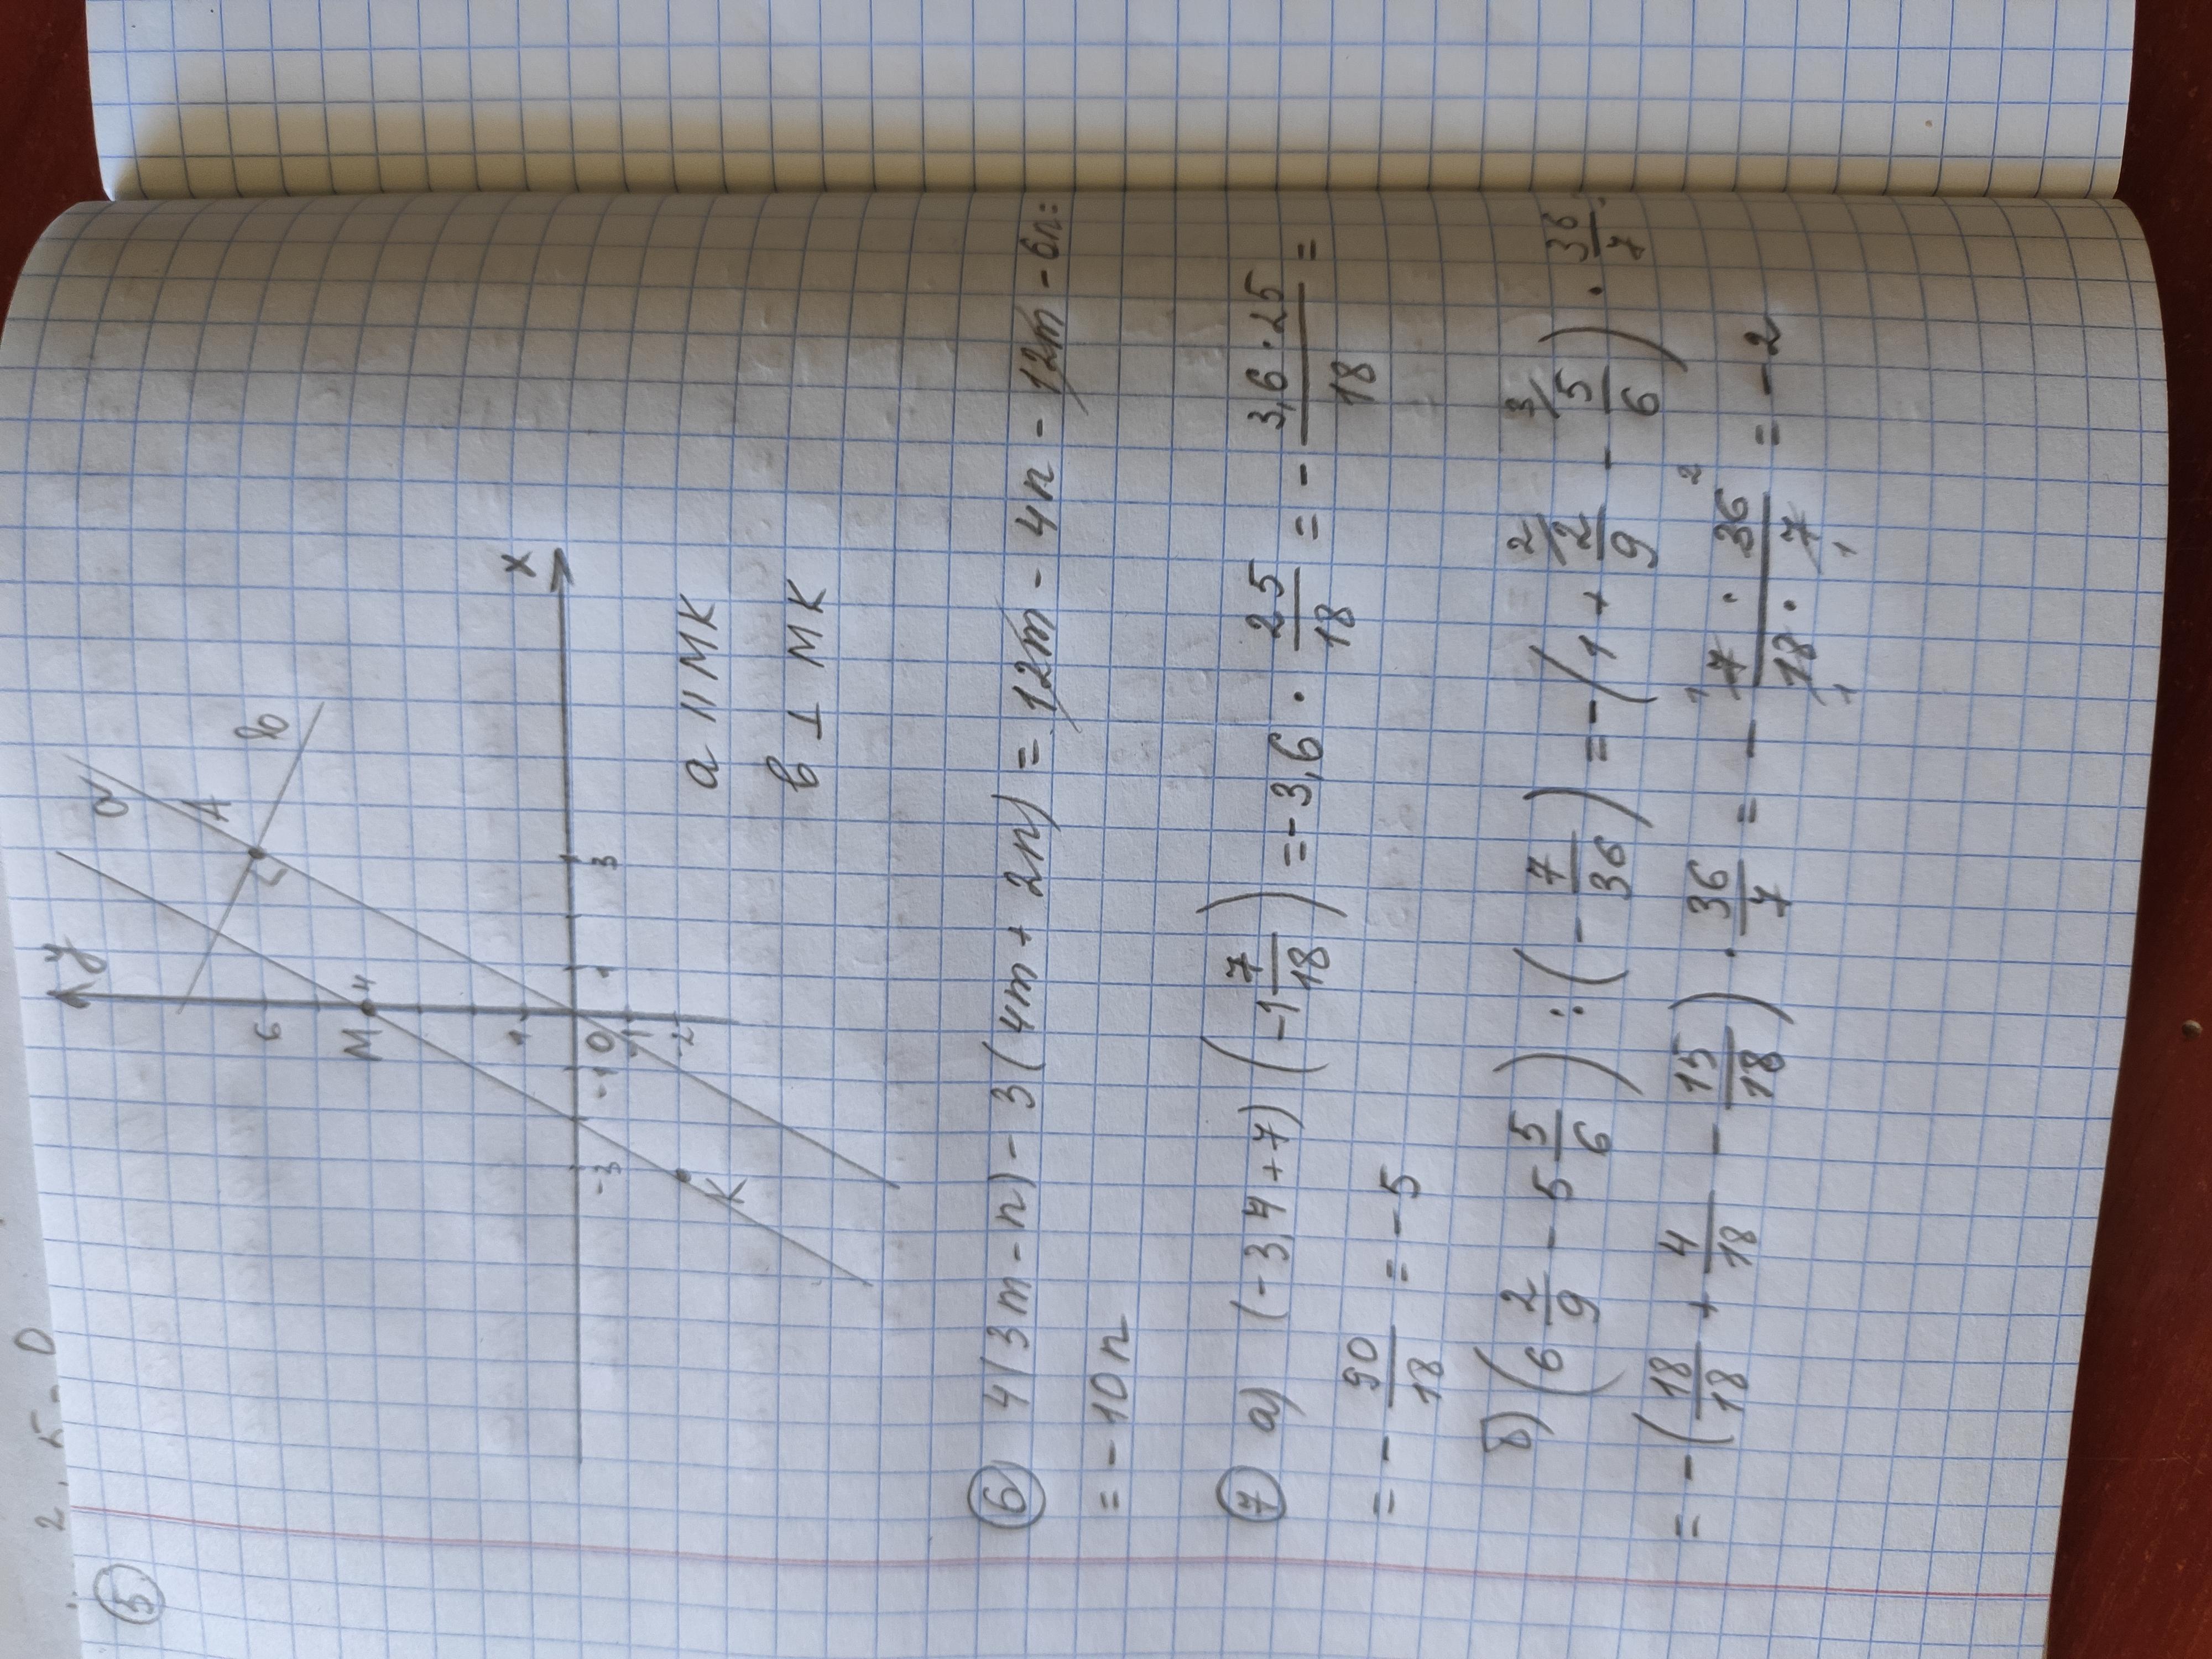 ⑤
y
a
в
A
6
M 4
1
x
-3 -1 0 1 3
-1
-2
K
a || MK
в ⊥ MK
⑥ 4(3m - n) - 3(4m + 2n) = 12m - 4n - 12m - 6n =
= - 10n
⑦ а) (-3,4 + 7) (-1 7/18) = -3,6 · 25/18 = - 3,6 · 25/18 =
= - 90/18 = -5
б) (6 2/9 - 5 5/6) : (- 7/36) = -(1 + 2/9 - 5/6) · 36/7
= -(18/18 + 4/18 - 15/18) · 36/7 = - 7 · 36/18 · 7 = -2